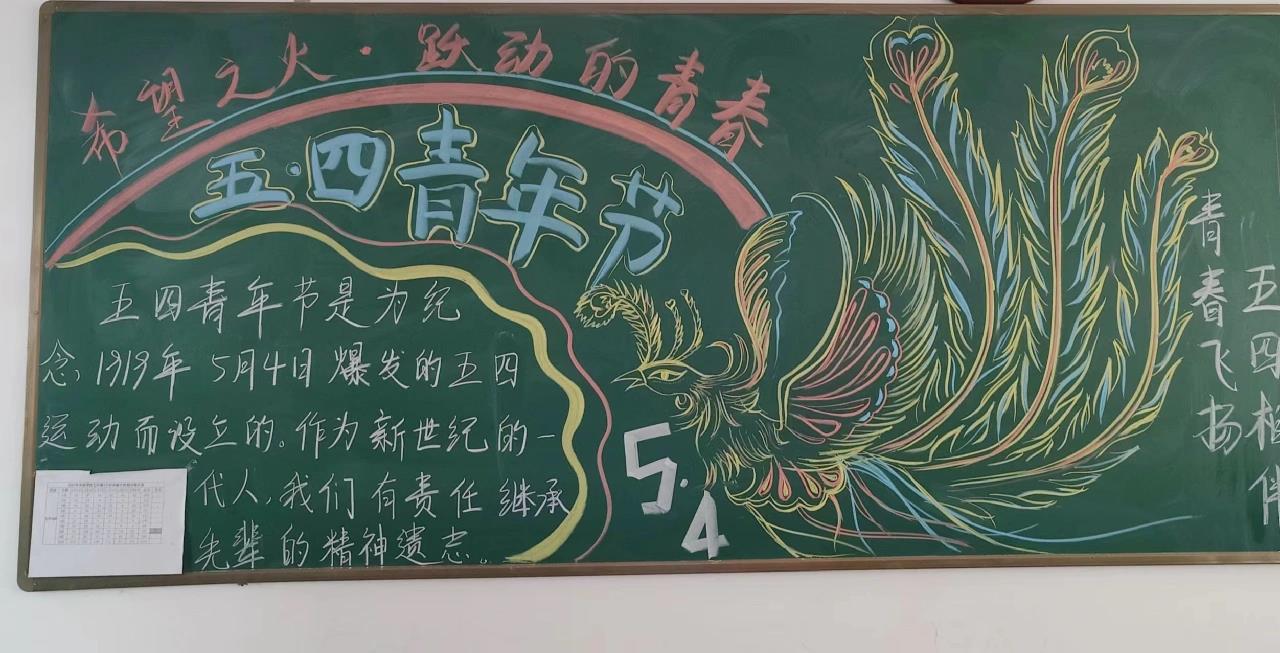 希望之火·跃动的青春
五·四青年节
五四青年节是为纪
念1919年5月4日爆发的五四
运动而设立的。作为新世纪的一
代人，我们有责任继承
先辈的精神遗志。
5.4
青春飞扬
五四相伴